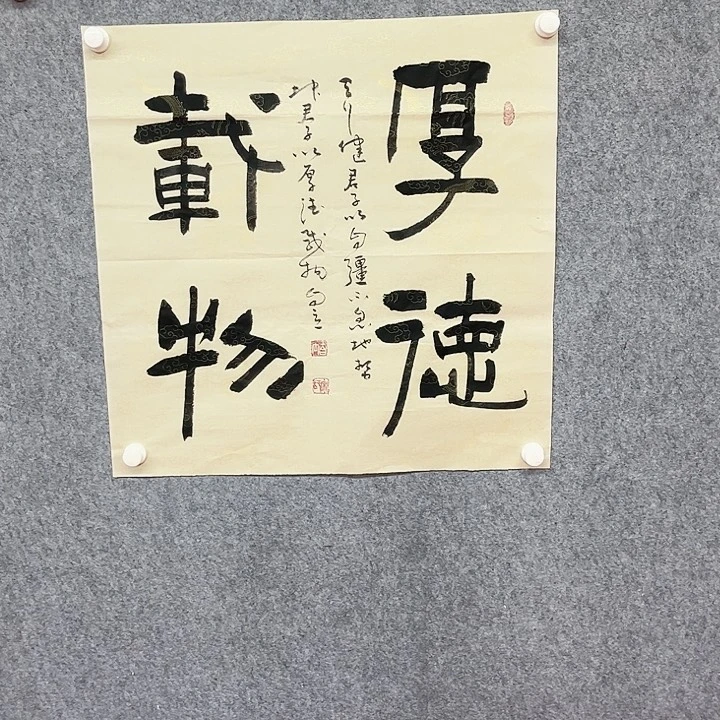 厚德
天行健君子以自彊不息地势
坤君子以厚德載物
載物